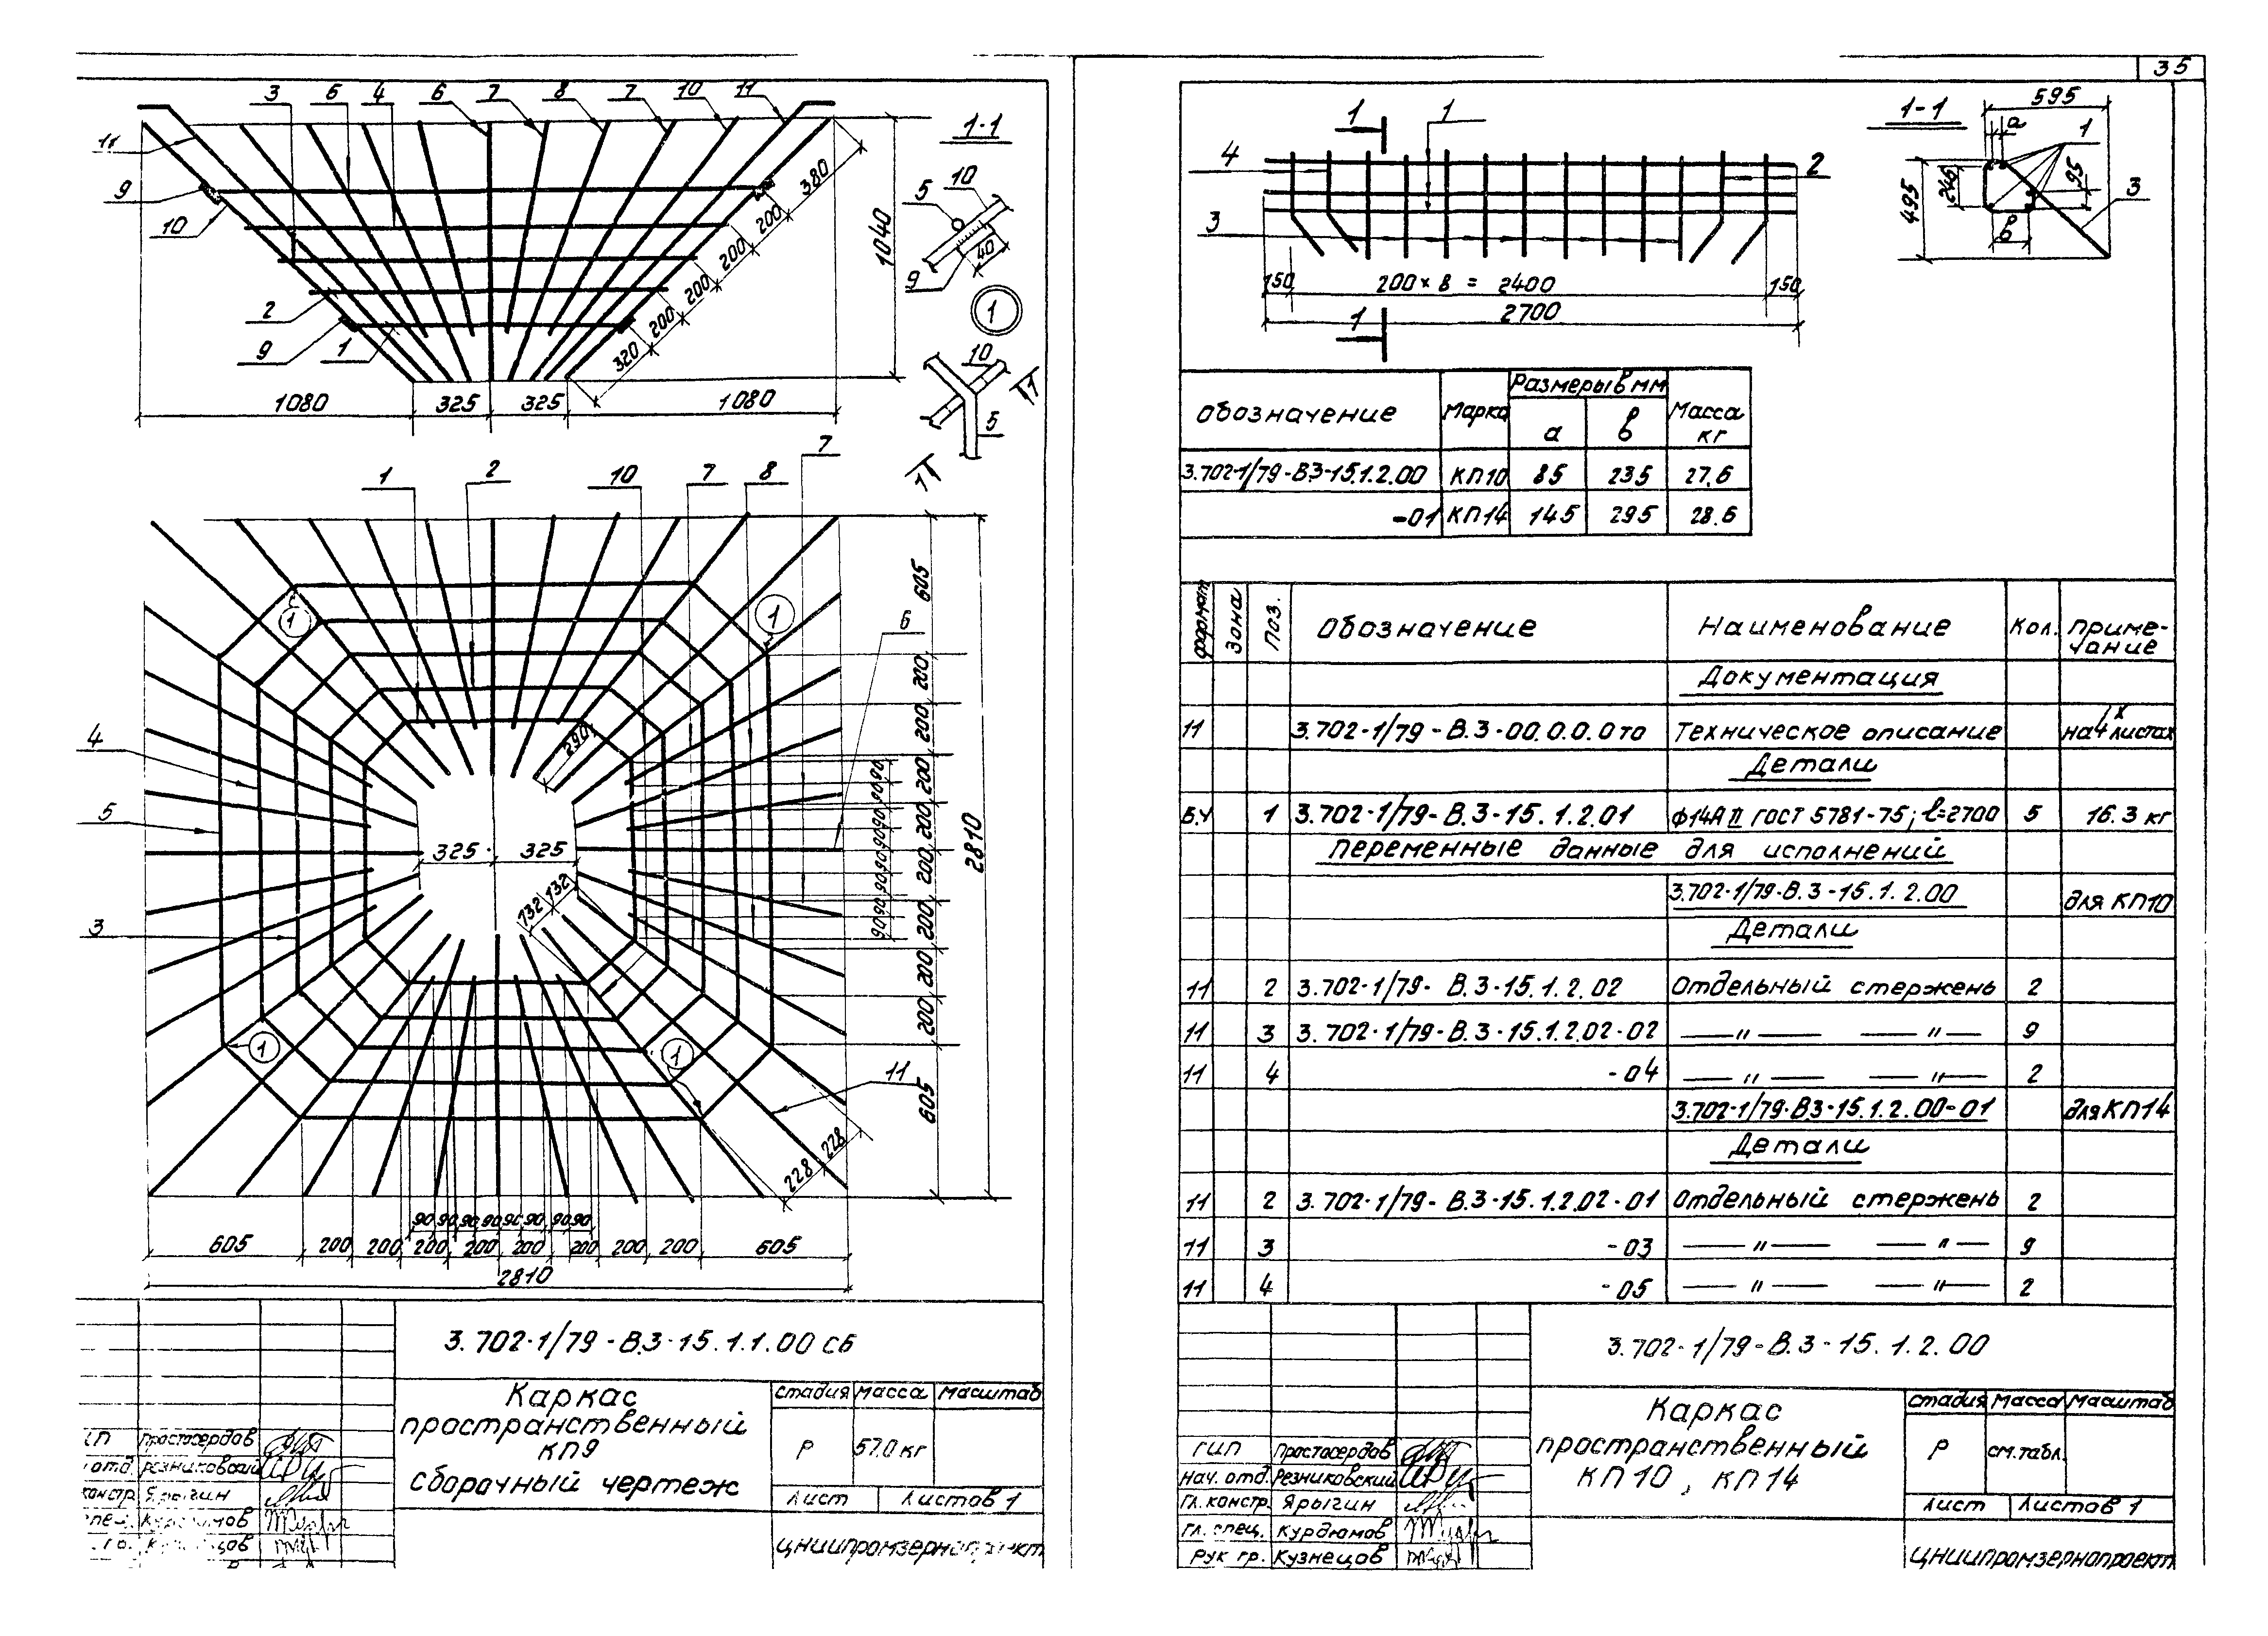 35
3 6 4 6 7 8 7 10 11
11
9
10
380
200
200
200
200
320
1040
2
9 1
1080 325 325 1080
1-1
5 10
9 40
1
10
1
5
1
1 2 10 7 8 7
1 1
6
4
5
3
290
325 325
132 132
1 1
11
228 228
605
200
200
200
200
200
200
200
200
605
2810
90 90 90 90 90 90 90 90
90 90 90 90 90 90 90 90
605 200 200 200 200 200 200 200 200 605
2810
3.702-1/79-В.3-15.1.1.00 СБ
Каркас
пространственный
КП9
Сборочный чертеж
стадия Масса Масштаб
Р 57.0 кг
Лист Листов 1
Простосердов
отд. Резниковский
констр. Ярыгин
1 1
4 2
3
150 200 × 8 = 2400 150
2700
1
1-1
595
а 1
495 246 95 3
в
Обозначение Марка Размеры в мм Масса кг
а в
3.702-1/79-В3-15.1.2.00 КП10 85 235 27.6
-01 КП14 145 295 28.6
формат Зона Поз. Обозначение Наименование Кол. Приме-
чание
Документация
11 3.702-1/79-В.3-00.0.0.0то Техническое описание на 14х листах
Детали
Б.Ч 1 3.702-1/79-В.3-15.1.2.01 ф14АII ГОСТ 5781-75; ℓ=2700 5 16.3 кг
Переменные данные для исполнений
3.702-1/79-В.3-15.1.2.00 для КП10
Детали
11 2 3.702-1/79-В.3-15.1.2.02 Отдельный стержень 2
11 3 3.702-1/79-В.3-15.1.2.02-02 — " — — " — 9
11 4 -04 — " — — " — 2
3.702-1/79-В3-15.1.2.00-01 для КП14
Детали
11 2 3.702-1/79-В.3-15.1.2.02-01 Отдельный стержень 2
11 3 -03 — " — — " — 9
11 4 -05 — " — — " — 2
3.702-1/79-В.3-15.1.2.00
Каркас
пространственный
КП10, КП14
стадия Масса Масштаб
Р см.табл.
Лист Листов 1
ГИП Простосердов
Нач. отд. Резниковский
Гл. констр. Ярыгин
Гл. спец. Курдюмов
Рук. гр. Кузнецов
ЦНИИпромзернопроект